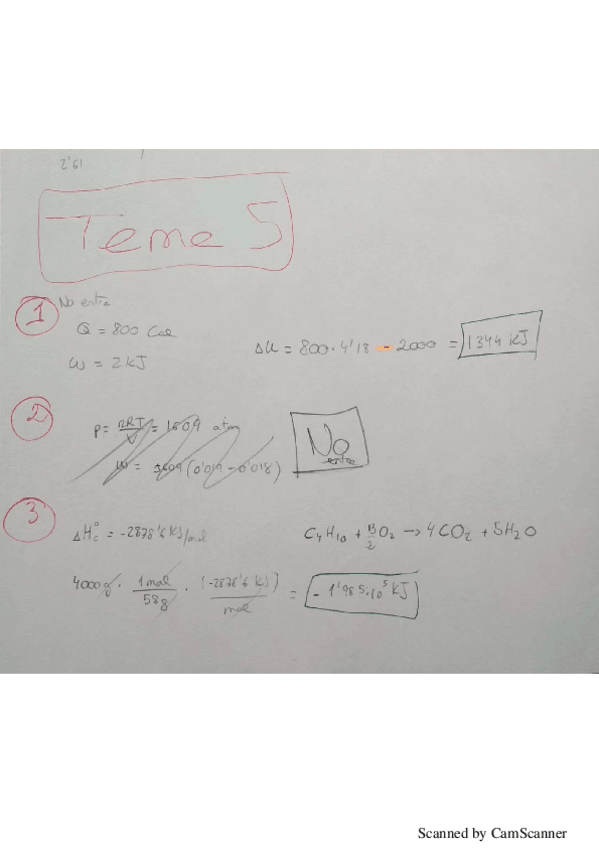 2'61
Teme 5
1 No entre
Q = 800 Cal
W = 2 KJ
ΔU = 800 · 4'18 - 2000 = 1344 KJ
2
P = nRT/V = 1609 atm
W = 1609 (0'019 - 0'018)
No
entre
3
ΔH°c = -2878'6 KJ/mol
C4H10 + 13/2 O2 → 4CO2 + 5H2O
4000 g · 1 mol/58 g · (-2878'6 KJ)/mol = -1'985·10^5 KJ
Scanned by CamScanner